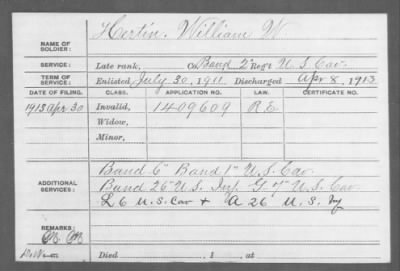 NAME OF SOLDIER: Hertin, William W.
SERVICE: Late rank, Co. Band 2" Reg't U.S. Cav.
TERM OF SERVICE: Enlisted July 30, 1911. Discharged Apr 8, 1913
DATE OF FILING. CLASS. APPLICATION NO. LAW. CERTIFICATE NO.
1913 Apr 30 Invalid, 1409609 R E
Widow,
Minor,
ADDITIONAL SERVICES: Band 6" Band 1" U.S. Cav.
Band 26" U.S. Inf G 7" U.S. Cav.
L 6 U.S. Cav + A 26 U.S. Inf
REMARKS:
Died , 1 , at